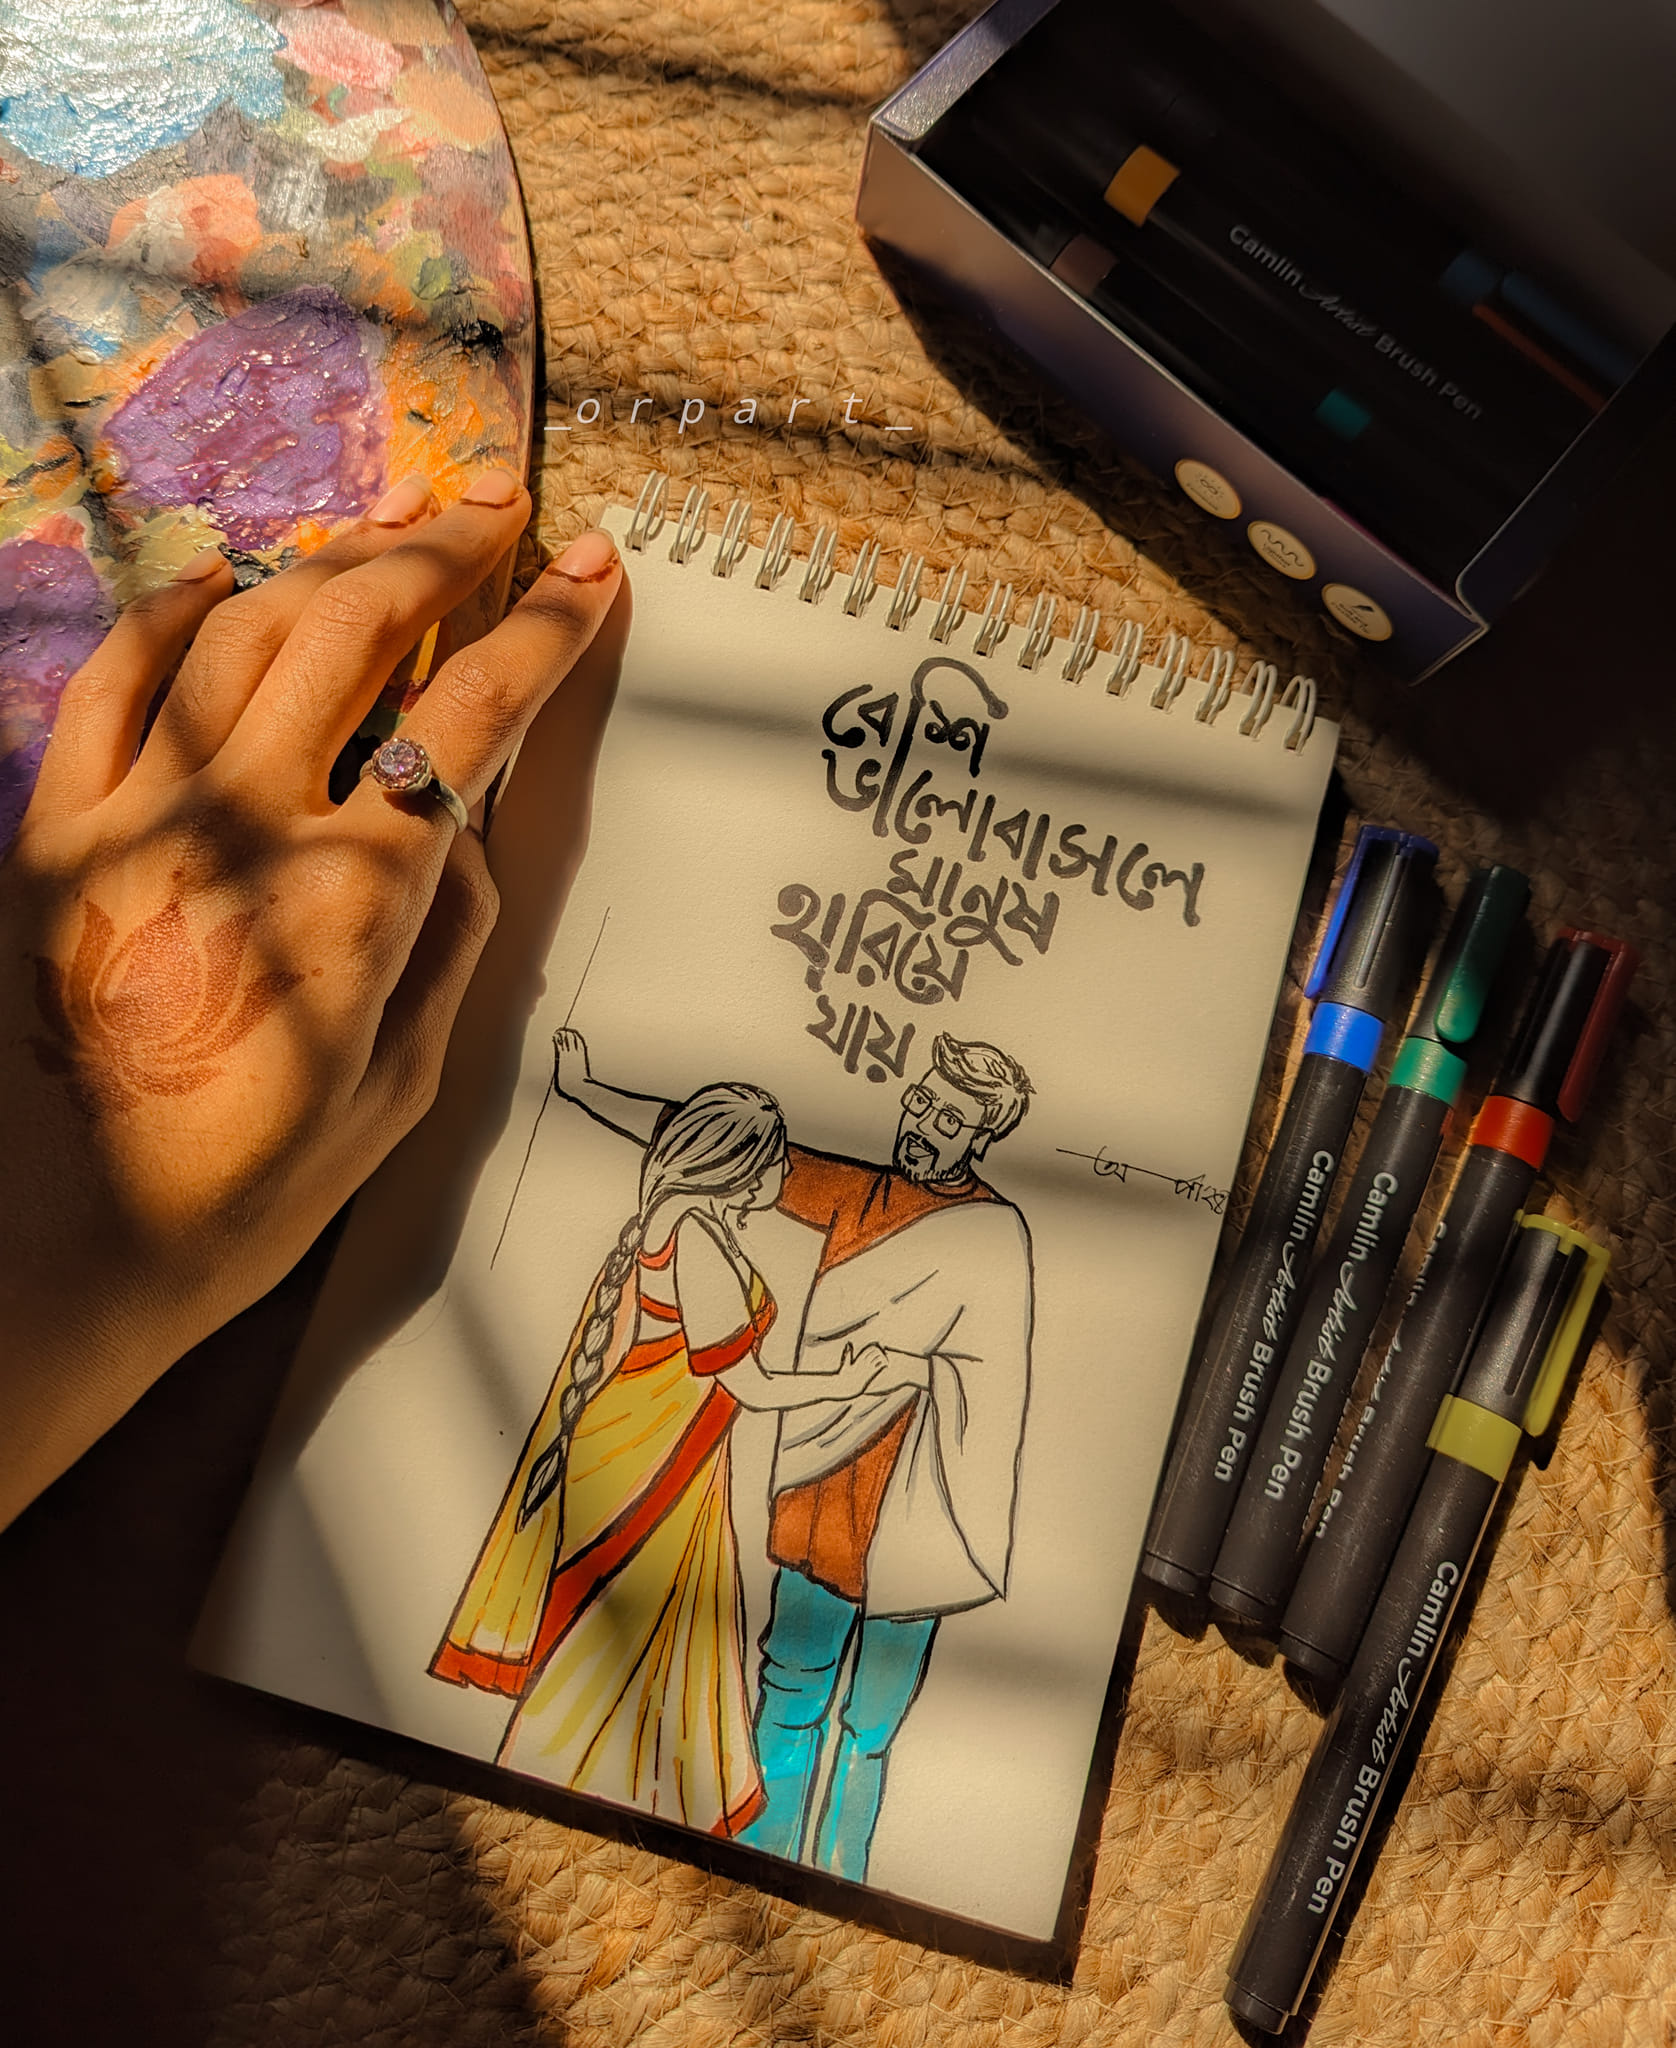 _orpart_
Camlin Artist Brush Pen
বেশি
ভালোবাসলে
মানুষ
হারিয়ে
যায়
Camlin Artist Brush Pen
Camlin Artist Brush Pen
Camlin Artist Brush Pen
Camlin Artist Brush Pen